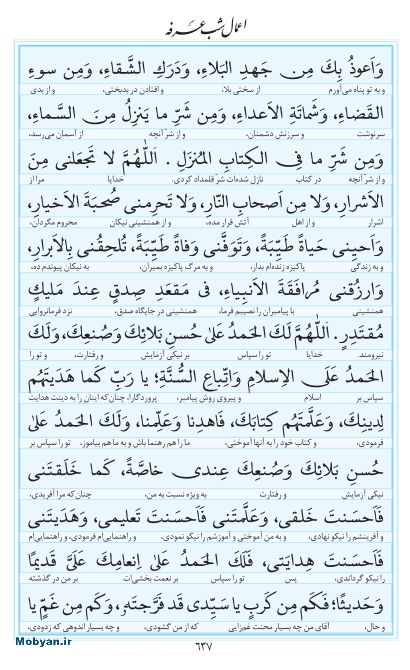 اعمال شب عرفه
وَاَعوذُ بِكَ مِن جَهدِ البَلاءِ، وَدَرَكِ الشَّقاءِ، وَمِن سوءِ
و به تو پناه می‌آورم از سختی بلا، و افتادن در بدبختی، و از بدی
القَضاءِ، وَشَماتَةِ الاَعداءِ، وَمِن شَرِّ ما يَنزِلُ مِنَ السَّماءِ،
سرنوشت و سرزنش دشمنان، و از شر آنچه از آسمان می‌رسد،
وَمِن شَرِّ ما فِى الكِتابِ المُنزَلِ . اَللّٰهُمَّ لا تَجعَلنى مِنَ
و از شر آنچه در کتاب نازل شده‌ات شر قلمداد کردی. خدایا مرا از
الاَشرارِ، وَلا مِن اَصحابِ النّارِ، وَلا تَحرِمنى صُحبَةَ الاَخيارِ،
اشرار و از اهل آتش قرار مده، و از همنشینی نیکان محروم مگردان،
وَاَحيِنى حَياةً طَيِّبَةً، وَتَوَفَّنى وَفاةً طَيِّبَةً، تُلحِقُنى بِالاَبرارِ،
و به زندگی پاکیزه زنده‌ام بدار، و به مرگ پاکیزه بمیران، به نیکان پیوندم ده،
وَارزُقنى مُرافَقَةَ الاَنبِياءِ، فى مَقعَدِ صِدقٍ عِندَ مَليكٍ
همنشینی با پیامبران را نصیبم فرما، همنشینی در جایگاه صدق، نزد فرمانروایی
مُقتَدِرٍ. اَللّٰهُمَّ لَكَ الحَمدُ عَلىٰ حُسنِ بَلائِكَ وَصُنعِكَ، وَلَكَ
نیرومند. خدایا تو را سپاس بر نیکی آزمایش و رفتارت، و تو را
الحَمدُ عَلَى الاِسلامِ وَاتِّباعِ السُّنَّةِ؛ يا رَبِّ كَما هَدَيتَهُم
سپاس بر اسلام و پیروی روش پیامبر، پروردگارا، چنان‌که اینان را به دینت هدایت
لِدينِكَ، وَعَلَّمتَهُم كِتابَكَ، فَاهدِنا وَعَلِّمنا، وَلَكَ الحَمدُ عَلىٰ
فرمودی، و کتاب خود را به آنها آموختی، ما را هم رهنما باش و به ما هم بیاموز، تو را سپاس بر
حُسنِ بَلائِكَ وَصُنعِكَ عِندى خاصَّةً، كَما خَلَقتَنى
نیکی آزمایش و رفتارت به ویژه نسبت به من، چنان‌که مرا آفریدی،
فَاَحسَنتَ خَلقى، وَعَلَّمتَنى فَاَحسَنتَ تَعليمى، وَهَدَيتَنى
و آفرینشم را نیکو نهادی، و به من آموختی و آموزشم را نیکو نمودی، و راهنمایی‌ام فرمودی، و راهنمایی‌ام
فَاَحسَنتَ هِدايَتى، فَلَكَ الحَمدُ عَلىٰ اِنعامِكَ عَلَىَّ قَديمًا
را نیکو گرداندی، پس تو را سپاس بر نعمت بخشی‌ات بر من در گذشته
وَحَديثًا؛ فَكَم مِن كَربٍ يا سَيِّدى قَد فَرَّجتَهُ، وَكَم مِن غَمٍّ يا
و حال، آقای من چه بسیار محنت غم‌زایی که از من گشودی، و چه بسیار اندوهی که زدودی،
۶۳۷
Mobyan.ir